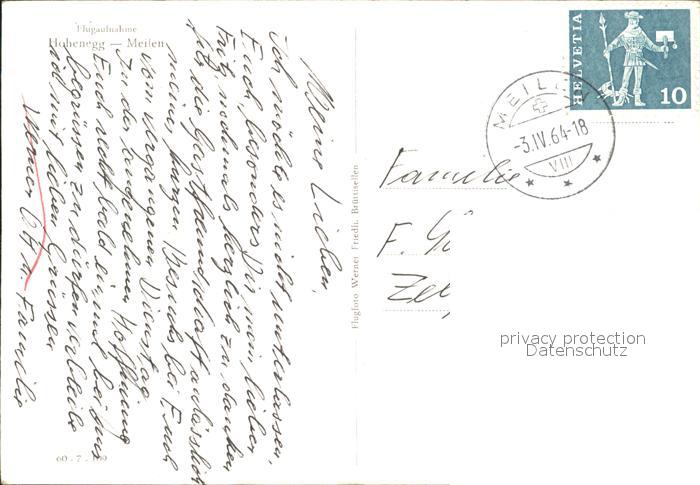 Flugaufnahme
Hohenegg — Meilen
Meine Lieben,
Ich möchte es nicht unterlassen,
Euch, besonders Dir mein lieber
Fritz nochmals herzlich zu danken
für die Gastfreundschaft anlässlich
meines kurzen Besuchs bei Euch
vom vergangenen Dienstag.
In der angenehmen Hoffnung
Euch recht bald einmal bei uns
begrüssen zu dürfen verbleibe
ich mit lieben Grüssen
Werner & Familie
60 - 7 -
Flugfoto Werner Friedli, Brüttisellen
HELVETIA
10
MEIL
-3.IV.64-18
VIII
Familie
F. Gü
Zel
privacy protection
Datenschutz